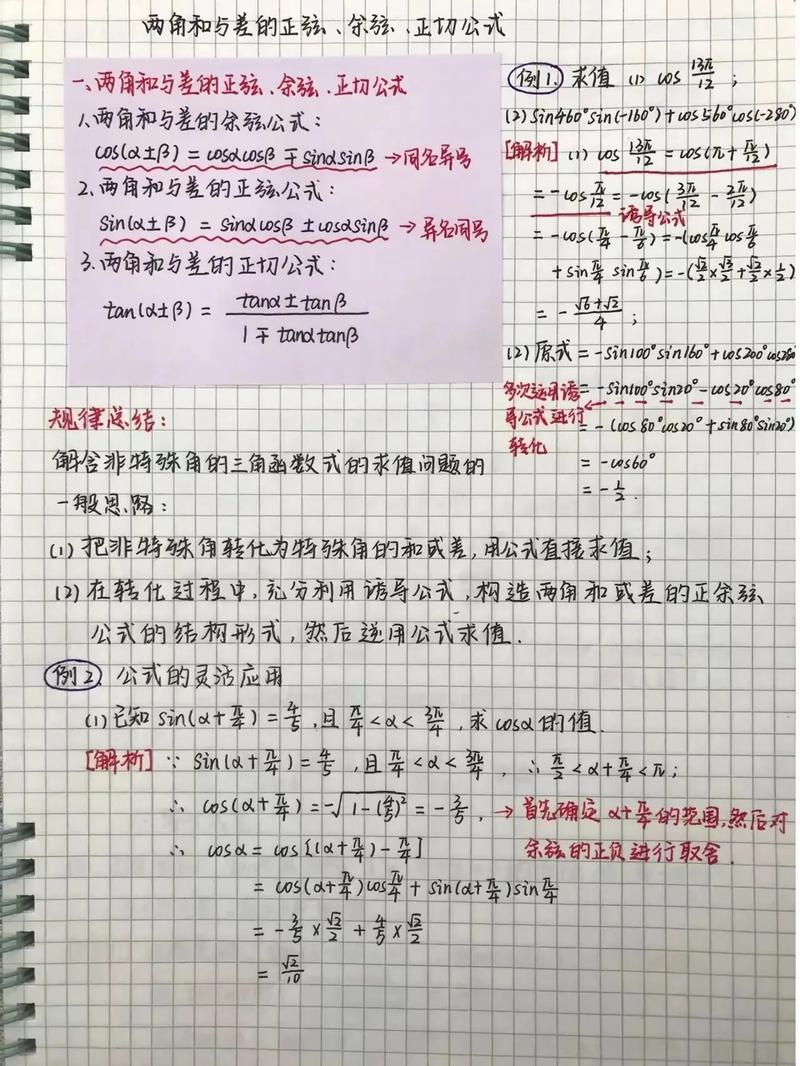 两角和与差的正弦、余弦、正切公式
一、两角和与差的正弦、余弦、正切公式
1、两角和与差的余弦公式：
cos(α±β) = cosαcosβ ∓ sinαsinβ → 同名异号
2、两角和与差的正弦公式：
sin(α±β) = sinαcosβ ± cosαsinβ → 异名同号
3、两角和与差的正切公式：
tan(α±β) = (tanα±tanβ)/(1∓tanαtanβ)
例1. 求值 (1) cos 13π/12 ;
(2) sin460°sin(-160°)+cos560°cos(-280°)
[解析] (1) cos 13π/12 = cos(π+π/12)
= -cos π/12 = -cos(3π/12 - 2π/12)
诱导公式
= -cos(π/4 - π/6) = -(cos π/4 cos π/6
+ sin π/4 sin π/6) = -(√2/2×√3/2+√2/2×1/2)
= - (√6+√2)/4 ;
(2) 原式 = -sin100°sin160°+cos200°cos280°
= -sin100°sin20°-cos20°cos80°
多次运用诱导公式进行转化
= -(cos80°cos20°+sin80°sin20°)
= -cos60°
= -1/2 .
规律总结：
解含非特殊角的三角函数式的求值问题的
一般思路：
(1) 把非特殊角转化为特殊角的和或差，用公式直接求值；
(2) 在转化过程中，充分利用诱导公式，构造两角和或差的正余弦
公式的结构形式，然后逆用公式求值．
例2. 公式的灵活应用
(1) 已知 sin(α+π/4) = 4/5 , 且 π/4<α<3π/4 , 求 cosα 的值．
[解析] ∵ sin(α+π/4) = 4/5 , 且 π/4<α<3π/4 , ∴ π/2<α+π/4<π ;
∴ cos(α+π/4) = -√(1-(4/5)²) = -3/5 , → 首先确定 α+π/4 的范围，然后对
余弦的正负进行取舍．
∴ cosα = cos[(α+π/4)-π/4]
= cos(α+π/4)cos π/4 + sin(α+π/4)sin π/4
= -3/5 × √2/2 + 4/5 × √2/2
= √2/10